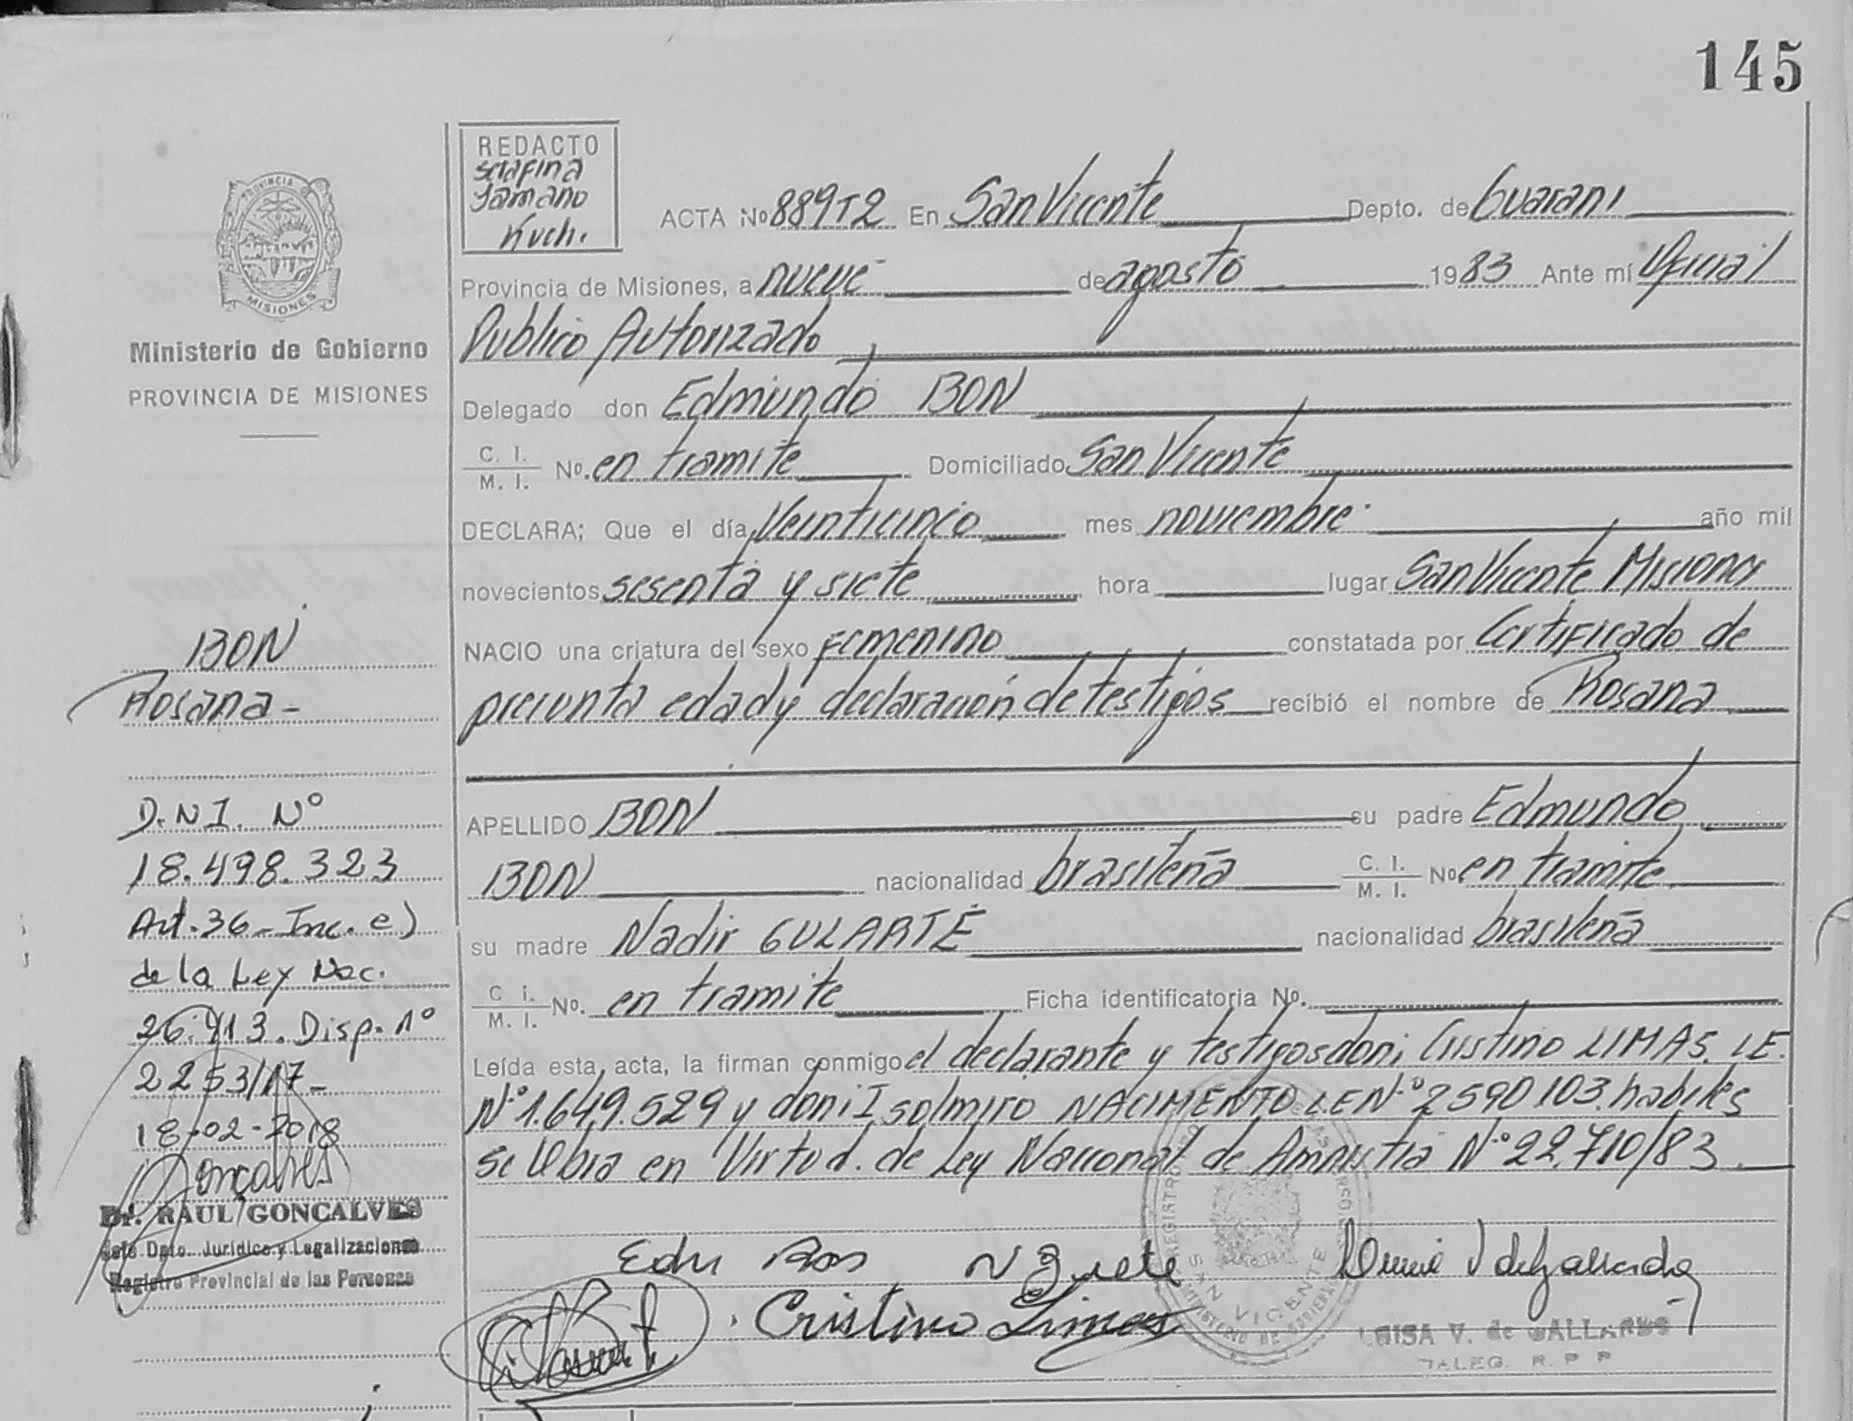 145
REDACTO
Serafina
Jamano
Kuch.
PROVINCIA D
MISIONES
Ministerio de Gobierno
PROVINCIA DE MISIONES
ACTA Nº 889T2 En San Vicente Depto. de Guarani
Provincia de Misiones, a nueve de agosto 1983 Ante mí Oficial
Publico Autorizado
Delegado don Edmundo BON
C. I. / M. I. Nº. en tramite Domiciliado San Vicente
DECLARA; Que el día Veinticinco mes noviembre año mil
novecientos sesenta y siete hora lugar San Vicente Misiones
NACIO una criatura del sexo Femenino constatada por Certificado de
presunta edad y declaración de testigos recibió el nombre de Rosana
APELLIDO BON su padre Edmundo
BON nacionalidad brasileña C. I. / M. I. Nº en tramite
su madre Nadir GULARTE nacionalidad brasileña
C i. / M. I. Nº. en tramite Ficha identificatoria Nº.
Leída esta, acta, la firman conmigo el declarante y testigos don; Cristino LIMAS. LE.
Nº 1.649.529 y don; Isolmiro NACIMENTO LE Nº 2590103. habiles
Se labra en Virtud. de Ley Nacional de Amnistia Nº 22.710/83.
BON
Rosana -
D.N.I. Nº
18.498.323
Art. 36 - Inc. e)
de la Ley Nac.
26.413. Disp. nº
2253/17-
18-02-2018
Goncalves
Dr. RAUL GONCALVES
Jefe Dpto. Jurídico y Legalizaciones
Registro Provincial de las Personas
Cristino Limas
SAN VICENTE
MINISTERIO DE GOBIERNO
LUISA V. de GALLARDO
DALEG. R. P. P